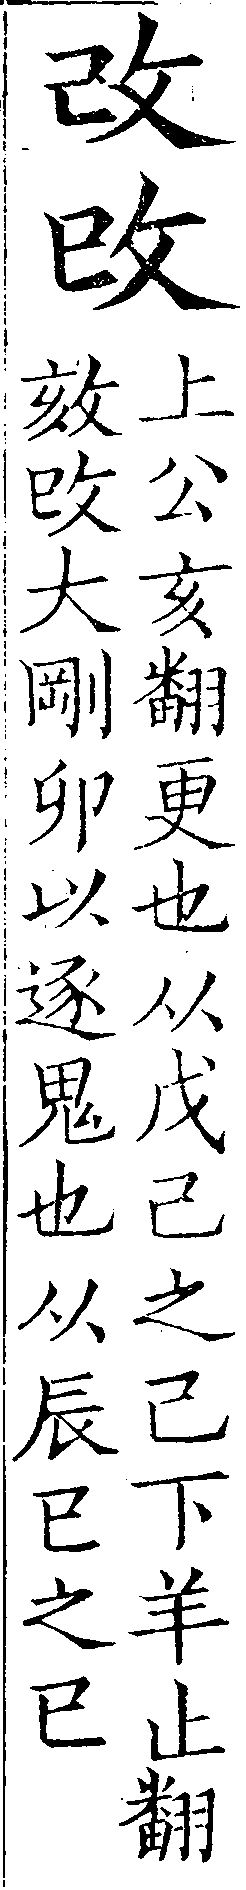 改㱾
上公亥翻更也从戊己之己下羊止翻
㱾攺大剛卯以逐鬼也从辰巳之巳